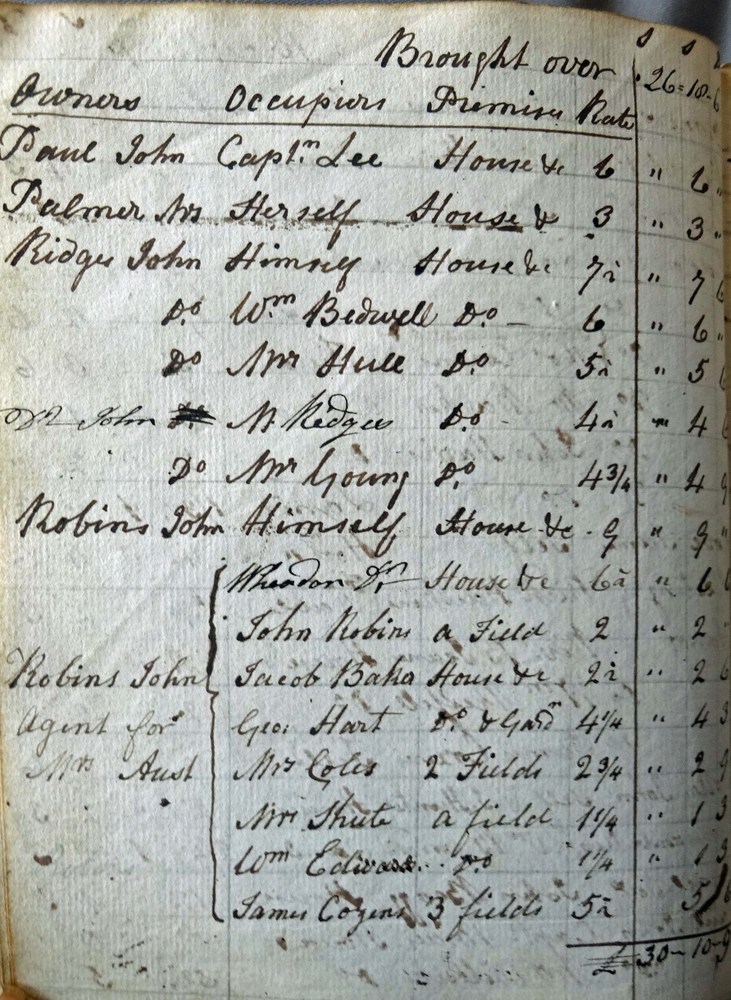 s s
Brought over 26=10-6
Owners Occupiers Premises Rate
Paul John Captn. Lee House &c 6 " 6 "
Palmer Mrs Herself House & 3 " 3 "
Ridges John Himself House &c 7½ " 7 6
Do Wm Bedwell Do - 6 " 6 "
Do Mrs Hull Do 5½ " 5 6
John M Redges Do - 4½ " 4 6
Do Mrs Young Do 4¾ " 4 9
Robins John Himself House &c - 9 " 9 "
Wheadon Dr House &c 6½ " 6 6
John Robins a Field 2 " 2 -
Robins John Jacob Baka House &c 2½ " 2 6
Agent for Geo: Hart Do & Gardn 4¼ " 4 3
Mrs Aust Mrs Coles 2 Fields 2¾ " 2 9
Mrs Shute a field 1¼ " 1 3
Wm Edwards Do 1¼ " 1 3
James Cozens 3 fields 5½ 5 6
£ 30-10-9